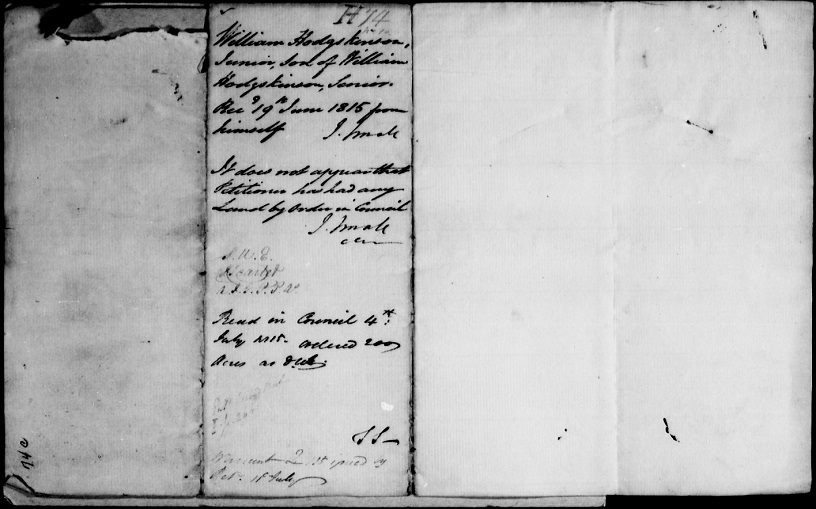 H 74
William Hodgskinson,
Junior, Son of William
Hodgskinson, Senior.
Rec.d 19th June 1815 from
himself J. Small
It does not appear that
Petitioner has had any
Land by Order in Council
J. Small
Read in Council 4th
July 1815. ordered 200
Acres as
SS
issued
July
74c